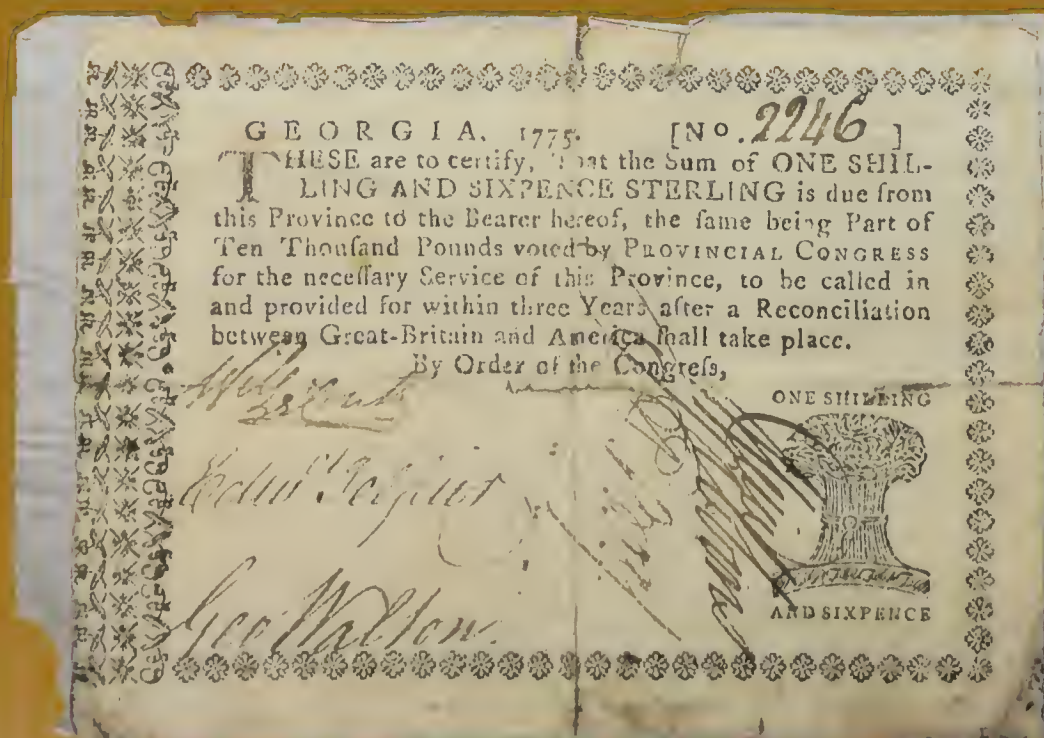 GEORGIA. 1775. [No. 2246]
THESE are to certify, That the Sum of ONE SHIL-
LING AND SIXPENCE STERLING is due from
this Province to the Bearer hereof, the ſame being Part of
Ten Thouſand Pounds voted by PROVINCIAL CONGRESS
for the neceſſary Service of this Province, to be called in
and provided for within three Years after a Reconciliation
between Great-Britain and America ſhall take place.
By Order of the Congreſs,
ONE SHILLING
Edwd Telfair
Geo Walton
AND SIXPENCE